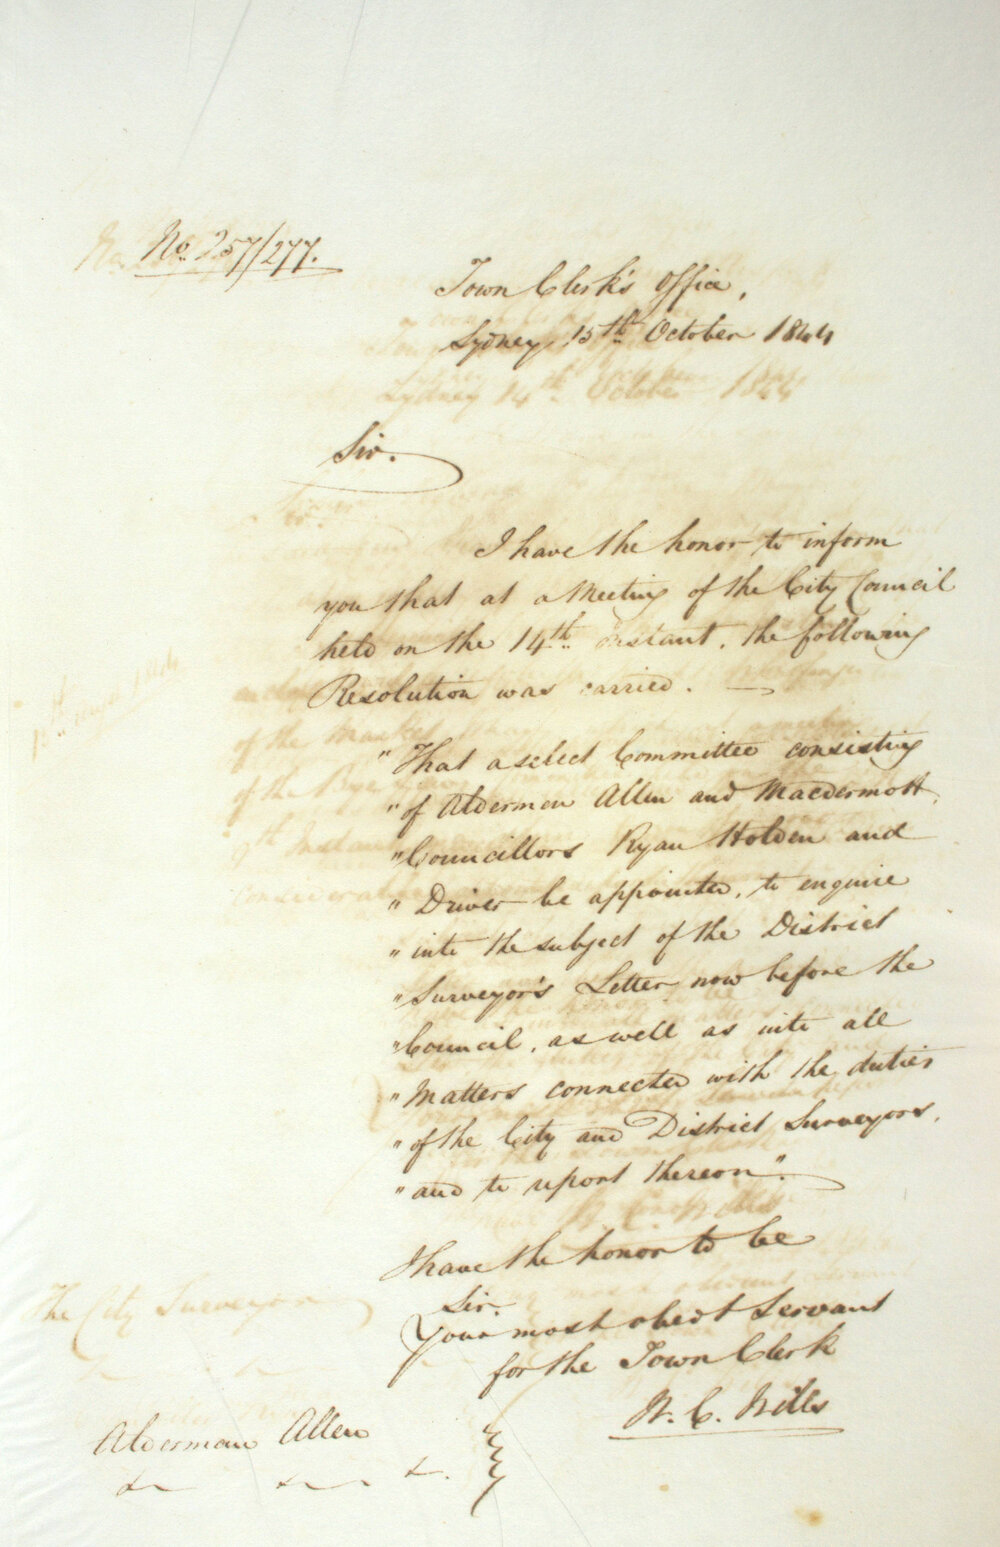 No. 257/277.
Town Clerk's Office,
Sydney 15th October 1844
Sir.
I have the honor to inform
you that at a Meeting of the City Council
held on the 14th instant, the following
Resolution was carried. —
"That a select Committee consisting
"of Aldermen Allen and Macdermott,
"Councillors Ryan Holden and
"Driver be appointed, to enquire
"into the subject of the District
"Surveyor's Letter now before the
"Council, as well as into all
"Matters connected with the duties
"of the City and District Surveyors,
"and to report thereon".
I have the honor to be
Sir.
Your most obedt Servant
for the Town Clerk
W. C. Wills
Alderman Allen